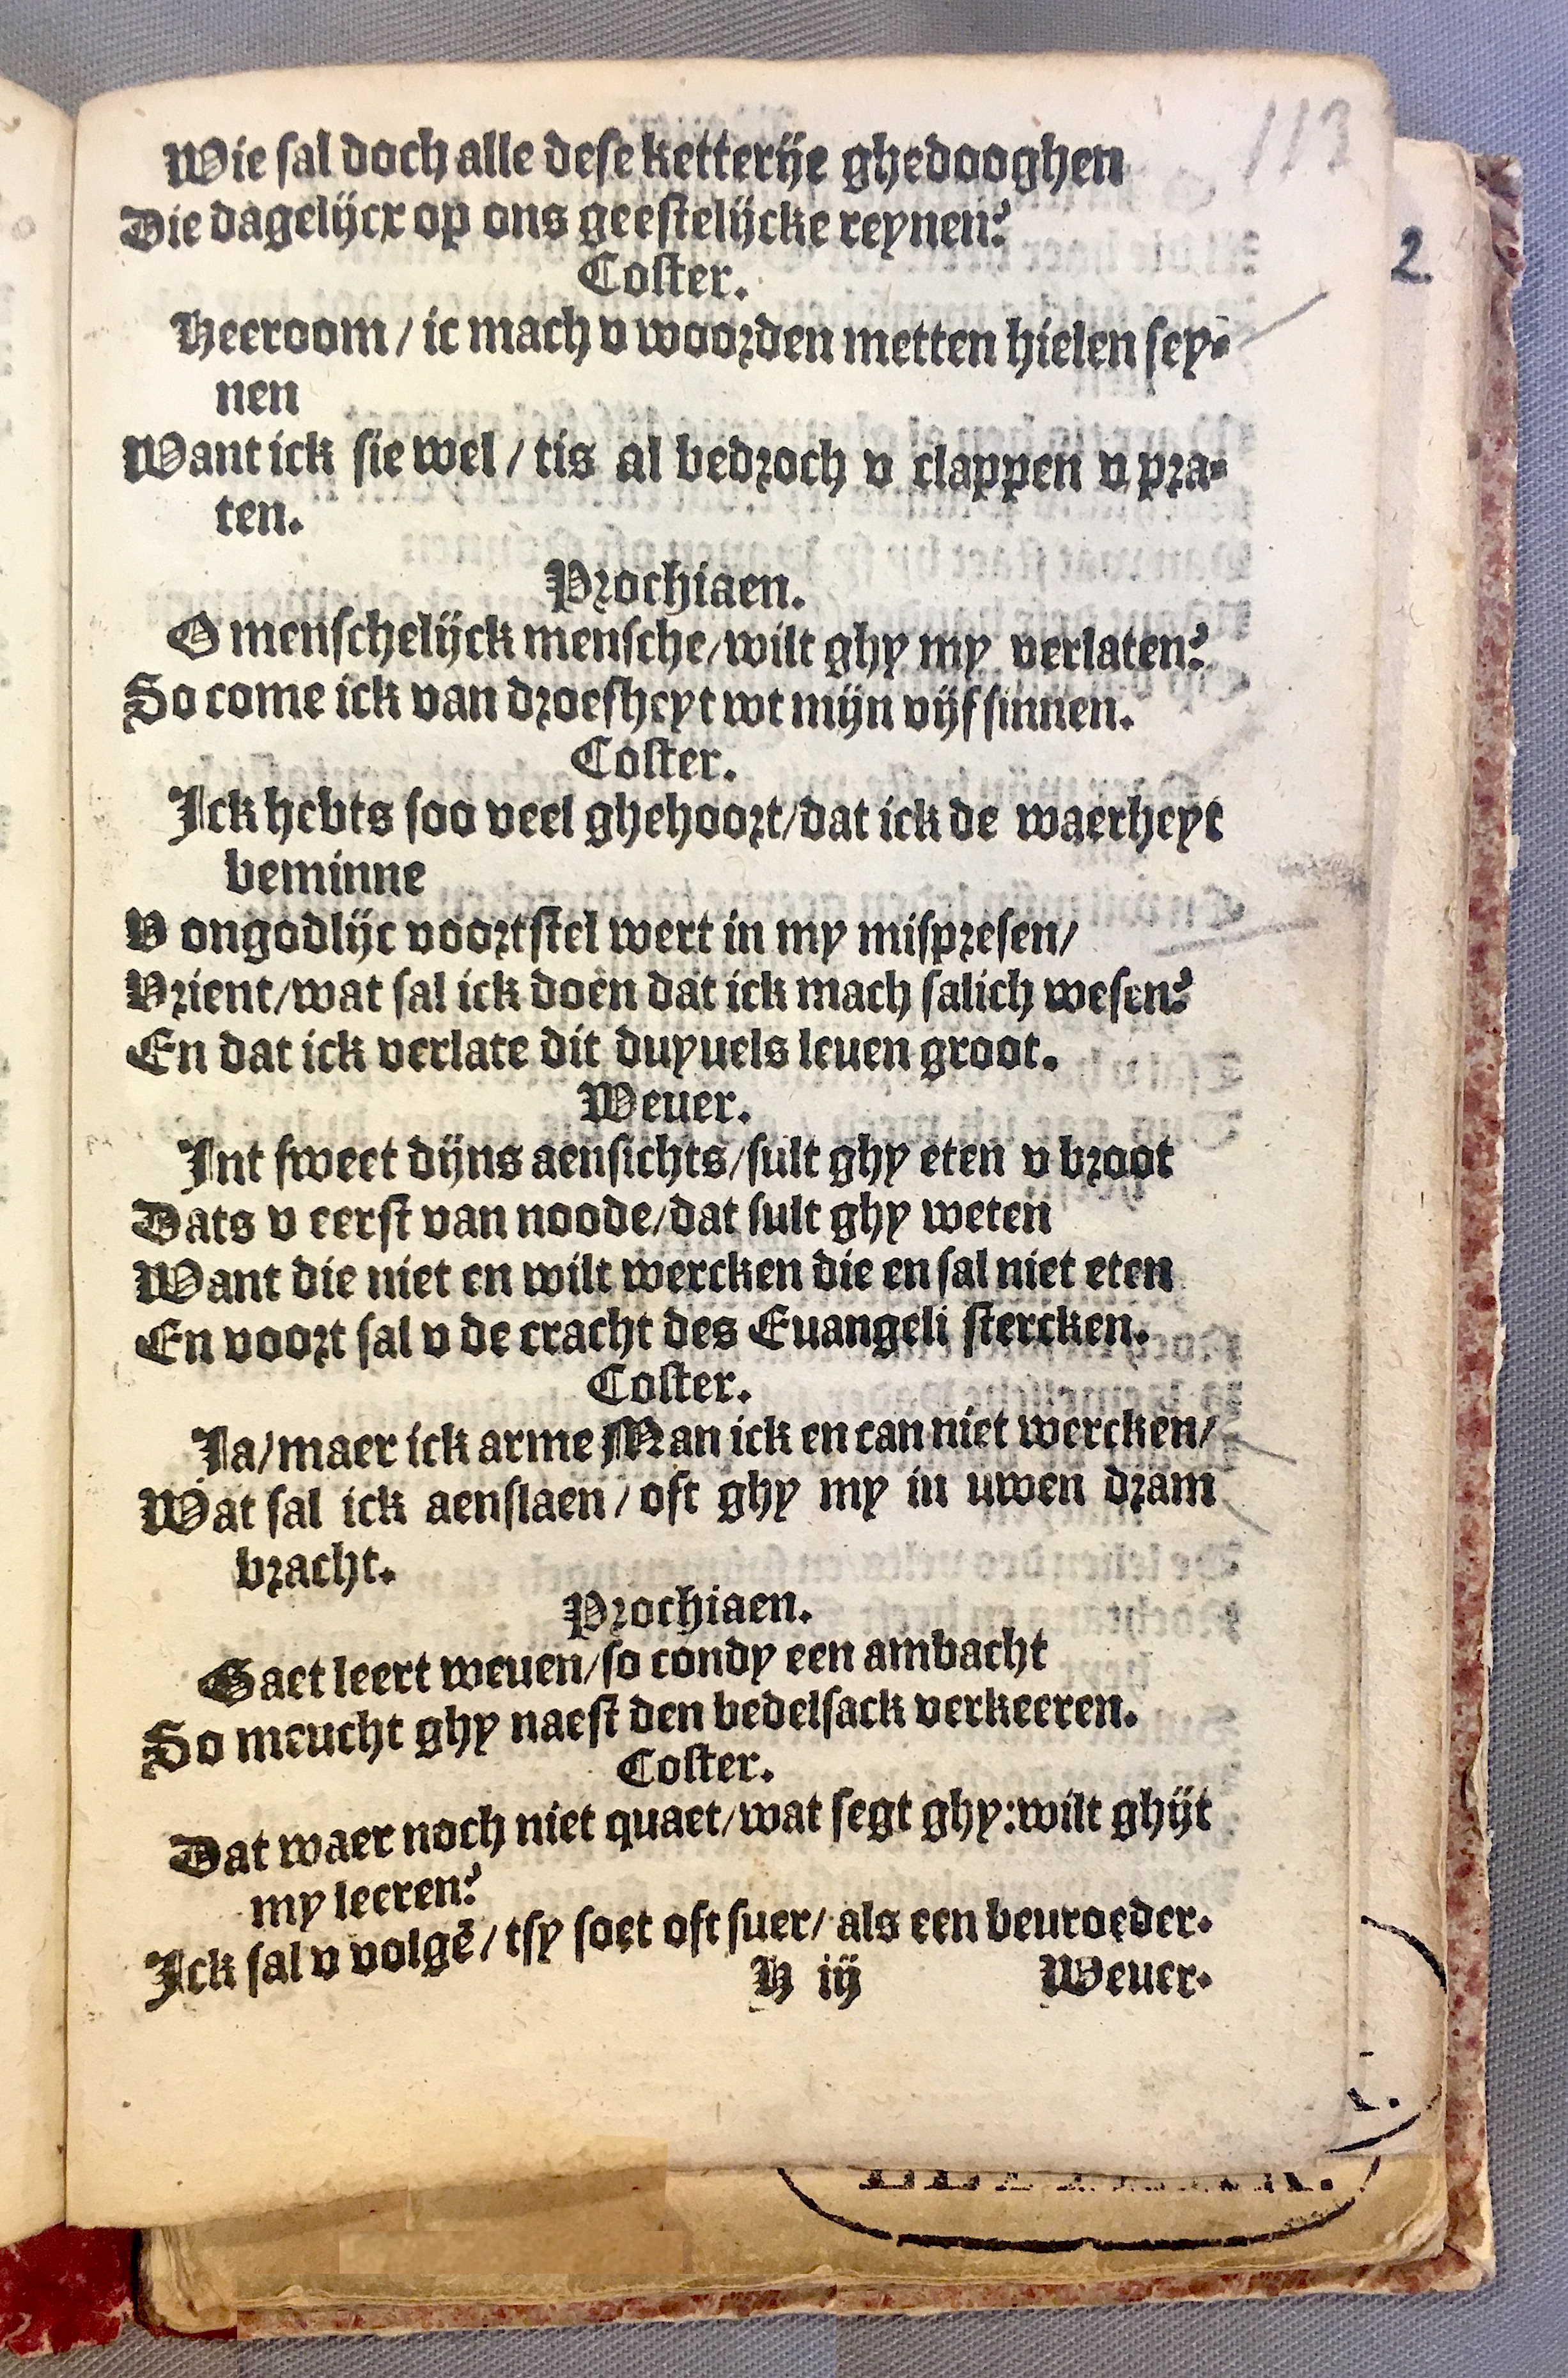 113
Wie sal doch alle dese ketterije ghedooghen
Die dagelijcx op ons geestelijcke reynen?
Coster.
Heeroom / ic mach v woorden metten hielen sey-
nen
Want ick sie wel / tis al bedroch v clappen v pra-
ten.
Prochiaen.
O menschelijck mensche/wilt ghy my verlaten?
So come ick van droefheyt wt mijn vijf sinnen.
Coster.
Ick hebts soo veel ghehoort/dat ick de waerheyt
beminne
V ongodlijc voortstel wert in my mispresen/
Vrient/wat sal ick doen dat ick mach salich wesen?
En dat ick verlate dit duyuels leuen groot.
Weuer.
Int sweet dijns aensichts/sult ghy eten v broot
Dats v eerst van noode/dat sult ghy weten
Want die niet en wilt wercken die en sal niet eten
En voort sal v de cracht des Euangeli stercken.
Coster.
Ja/maer ick arme Man ick en can niet wercken/
Wat sal ick aenslaen / oft ghy my in uwen dram
bracht.
Prochiaen.
Gaet leert weuen/so condy een ambacht
So meucht ghy naest den bedelsack verkeeren.
Coster.
Dat waer noch niet quaet/wat segt ghy:wilt ghijt
my leeren?
Ick sal v volgē / tsy soet oft suer/ als een beuroeder.
H iij Weuer.
2.